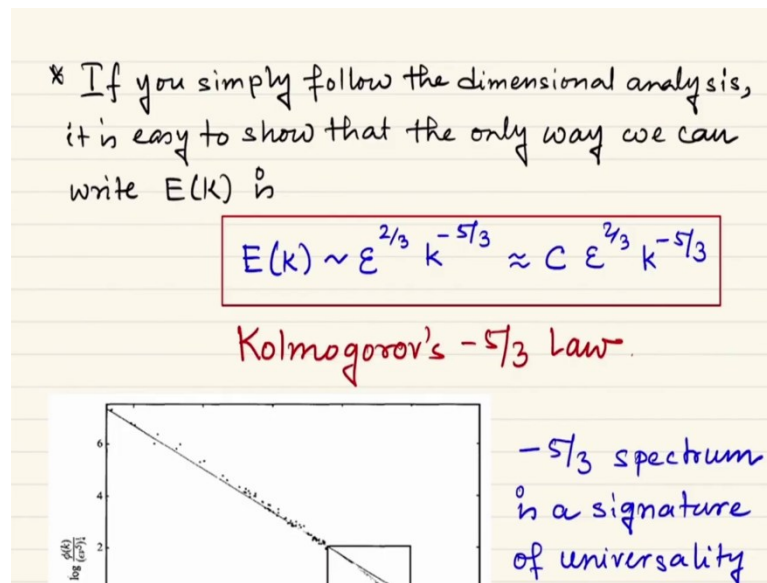 * If you simply follow the dimensional analysis,
it is easy to show that the only way we can
write E(k) is
E(k) ~ ε^{2/3} k^{-5/3} ≈ C ε^{2/3} k^{-5/3}
Kolmogorov's -5/3 Law.
-5/3 spectrum
is a signature
of universality
6
4
2
log